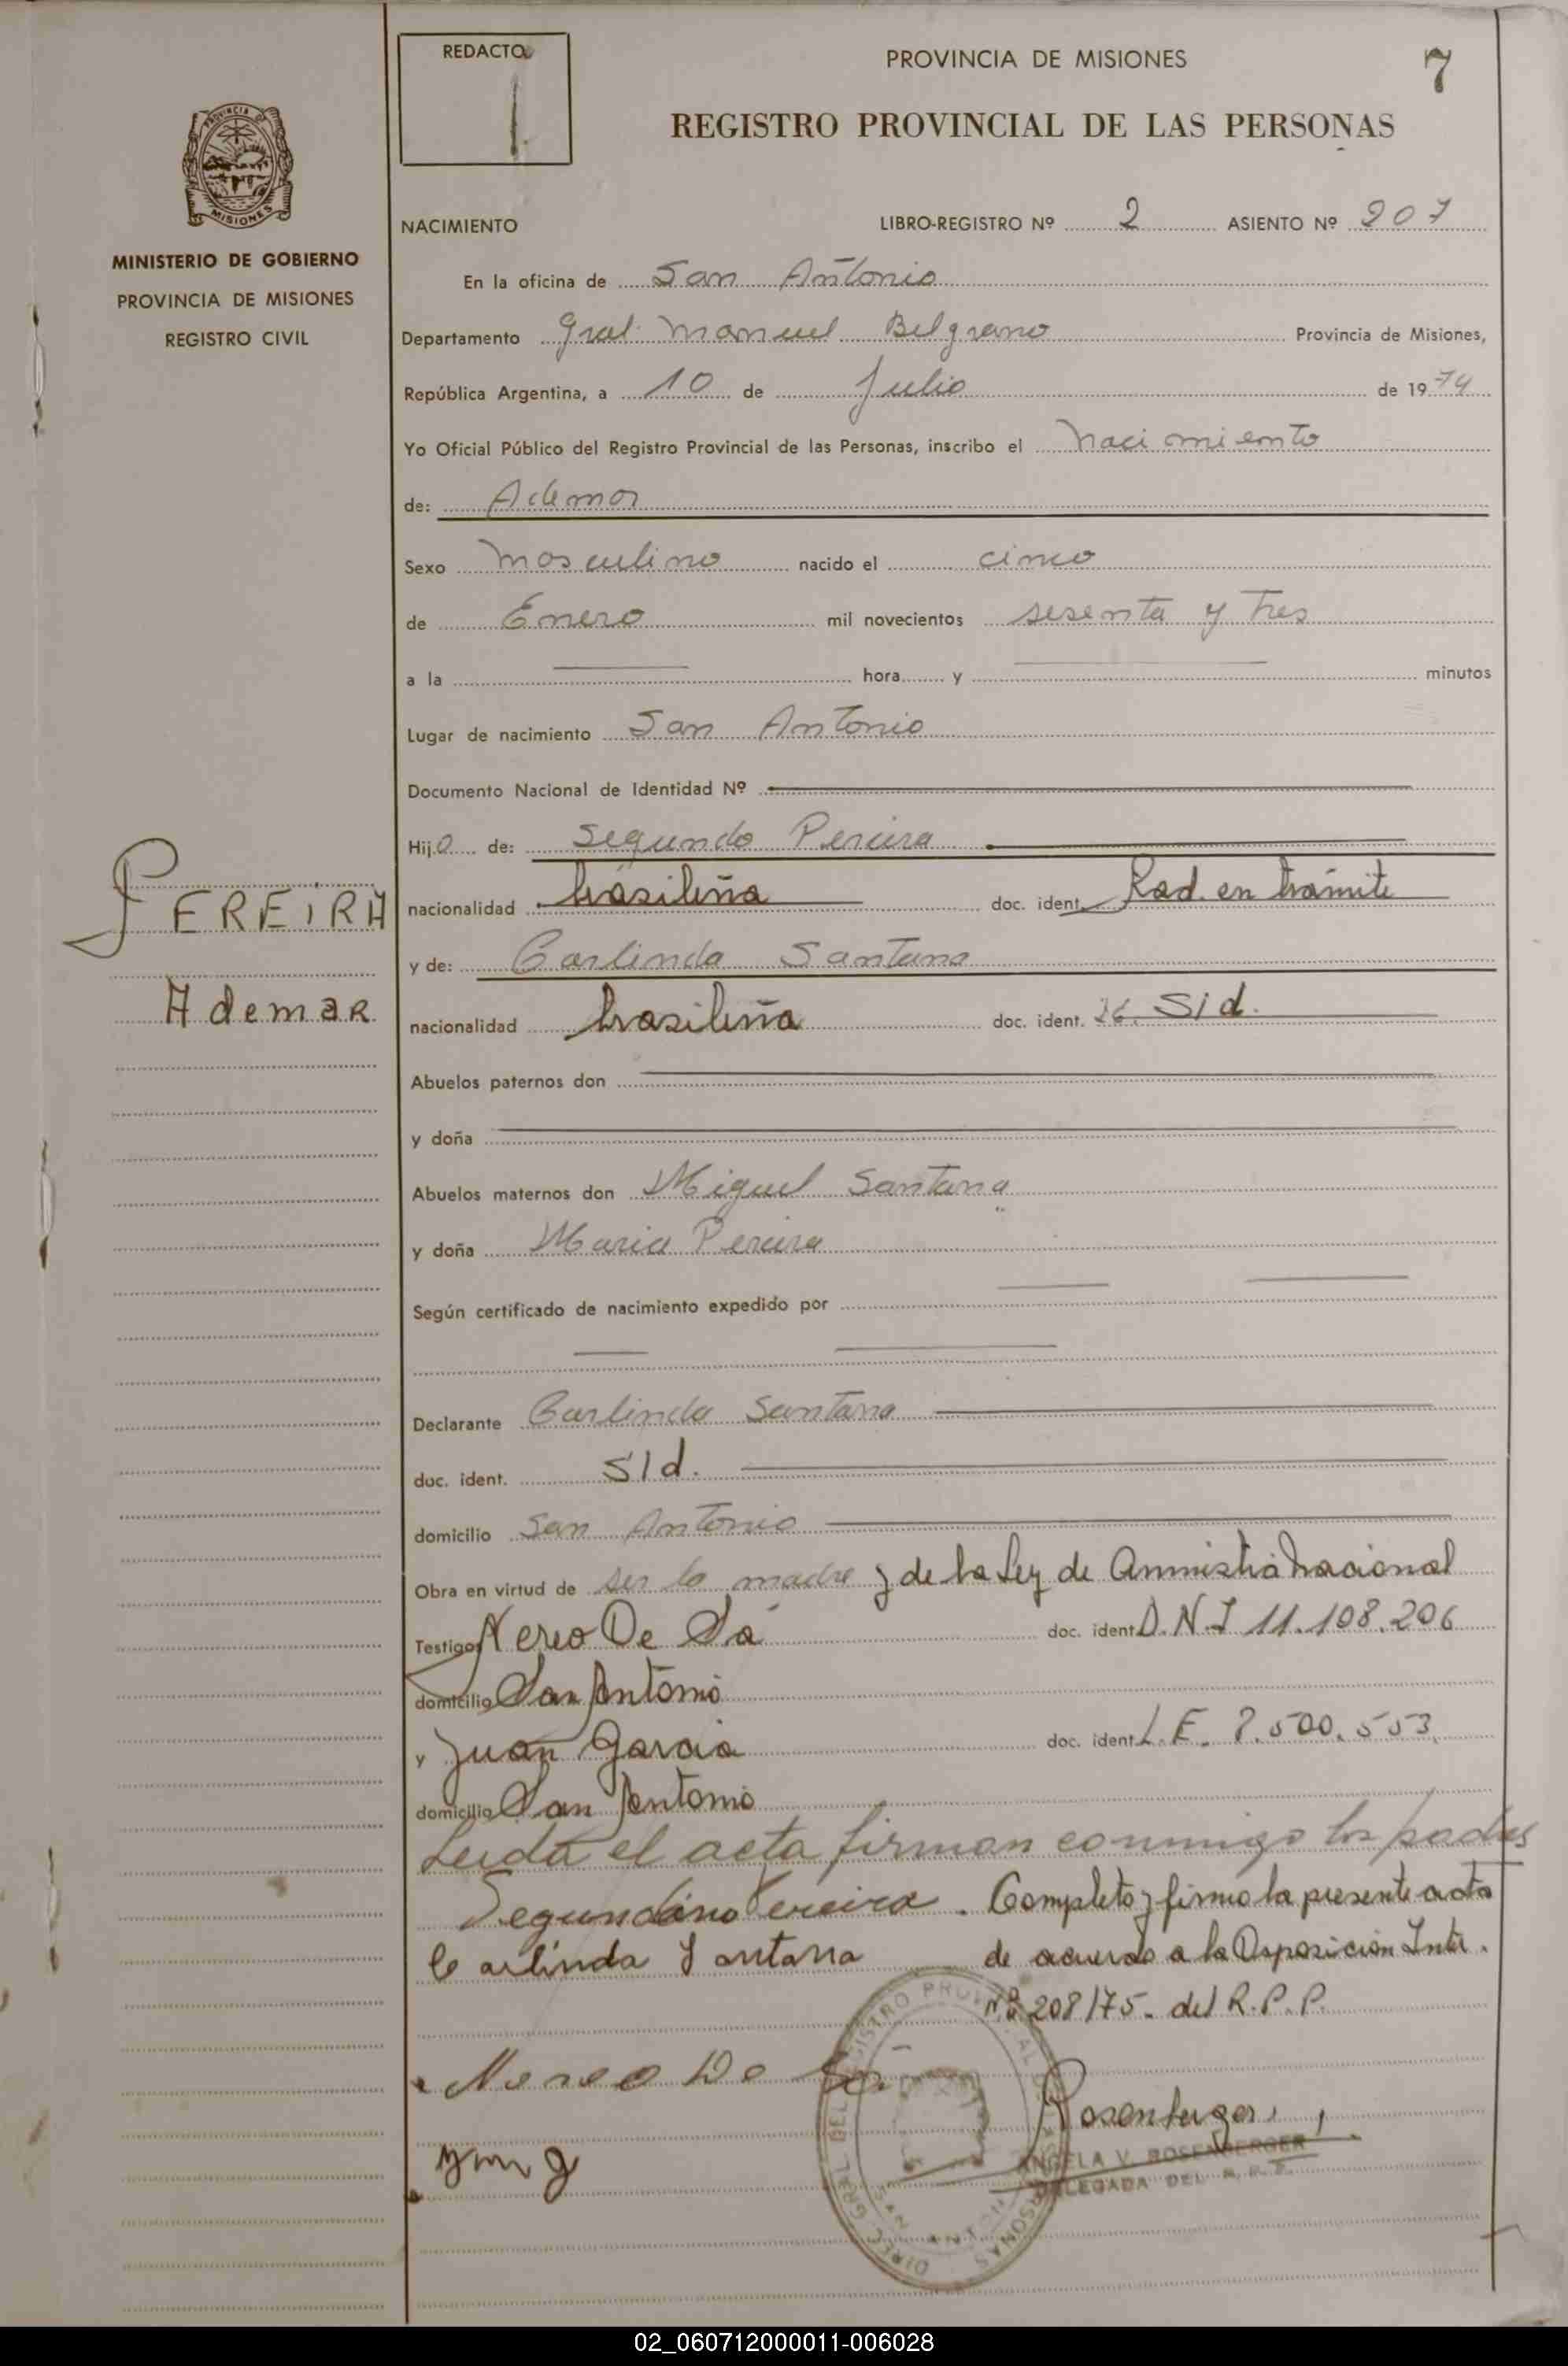 REDACTO
PROVINCIA DE MISIONES
7
REGISTRO PROVINCIAL DE LAS PERSONAS
PROVINCIA DE
MISIONES
MINISTERIO DE GOBIERNO
PROVINCIA DE MISIONES
REGISTRO CIVIL
NACIMIENTO LIBRO-REGISTRO Nº 2 ASIENTO Nº 207
En la oficina de San Antonio
Departamento Gral. Manuel Belgrano Provincia de Misiones,
República Argentina, a 10 de Julio de 1974
Yo Oficial Público del Registro Provincial de las Personas, inscribo el Nacimiento
de: Ademar
Sexo Masculino nacido el cinco
de Enero mil novecientos sesenta y Tres
a la hora y minutos
Lugar de nacimiento San Antonio
Documento Nacional de Identidad Nº
Hijo de: Segundo Pereira
PEREIRA
nacionalidad brasileña doc. ident. Rad. en trámite
y de: Carlinda Santana
Ademar
nacionalidad brasileña doc. ident. S/d.
Abuelos paternos don
y doña
Abuelos maternos don Miguel Santana
y doña Maria Pereira
Según certificado de nacimiento expedido por
Declarante Carlinda Santana
doc. ident. S/d.
domicilio San Antonio
Obra en virtud de ser la madre y de la Ley de Amnistia Nacional
Testigos Nereo De Sá doc. ident. D.N.I 11.108.206
domicilio San Antonio
y Juan Garcia doc. ident. L.E. 7.500.553
domicilio San Antonio
Leida el acta firman conmigo los padres
Segundino Pereira. Completo y firmo la presente acta
Carlinda Santana de acuerdo a la Disposición Inter.
Nº 208/75. del R.P.P.
Nereo De Sá
Rosenberger
ANGELA V. ROSENBERGER
DELEGADA DEL R. P. P.
02_060712000011-006028